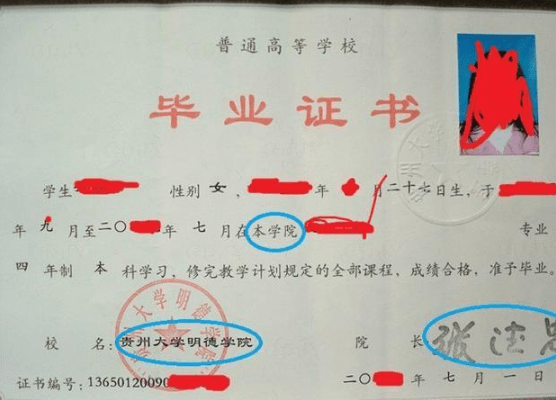 普通高等学校
毕业证书
学生 性别 女， 年 月二十七日生，于
年 九 月至二〇 年 七 月在本学院 专业
四 年制 本 科学习，修完教学计划规定的全部课程，成绩合格，准予毕业。
校 名：贵州大学明德学院 院 长：张
证书编号：13650120090 二〇 年 七 月 一 日
贵州大学明德学院